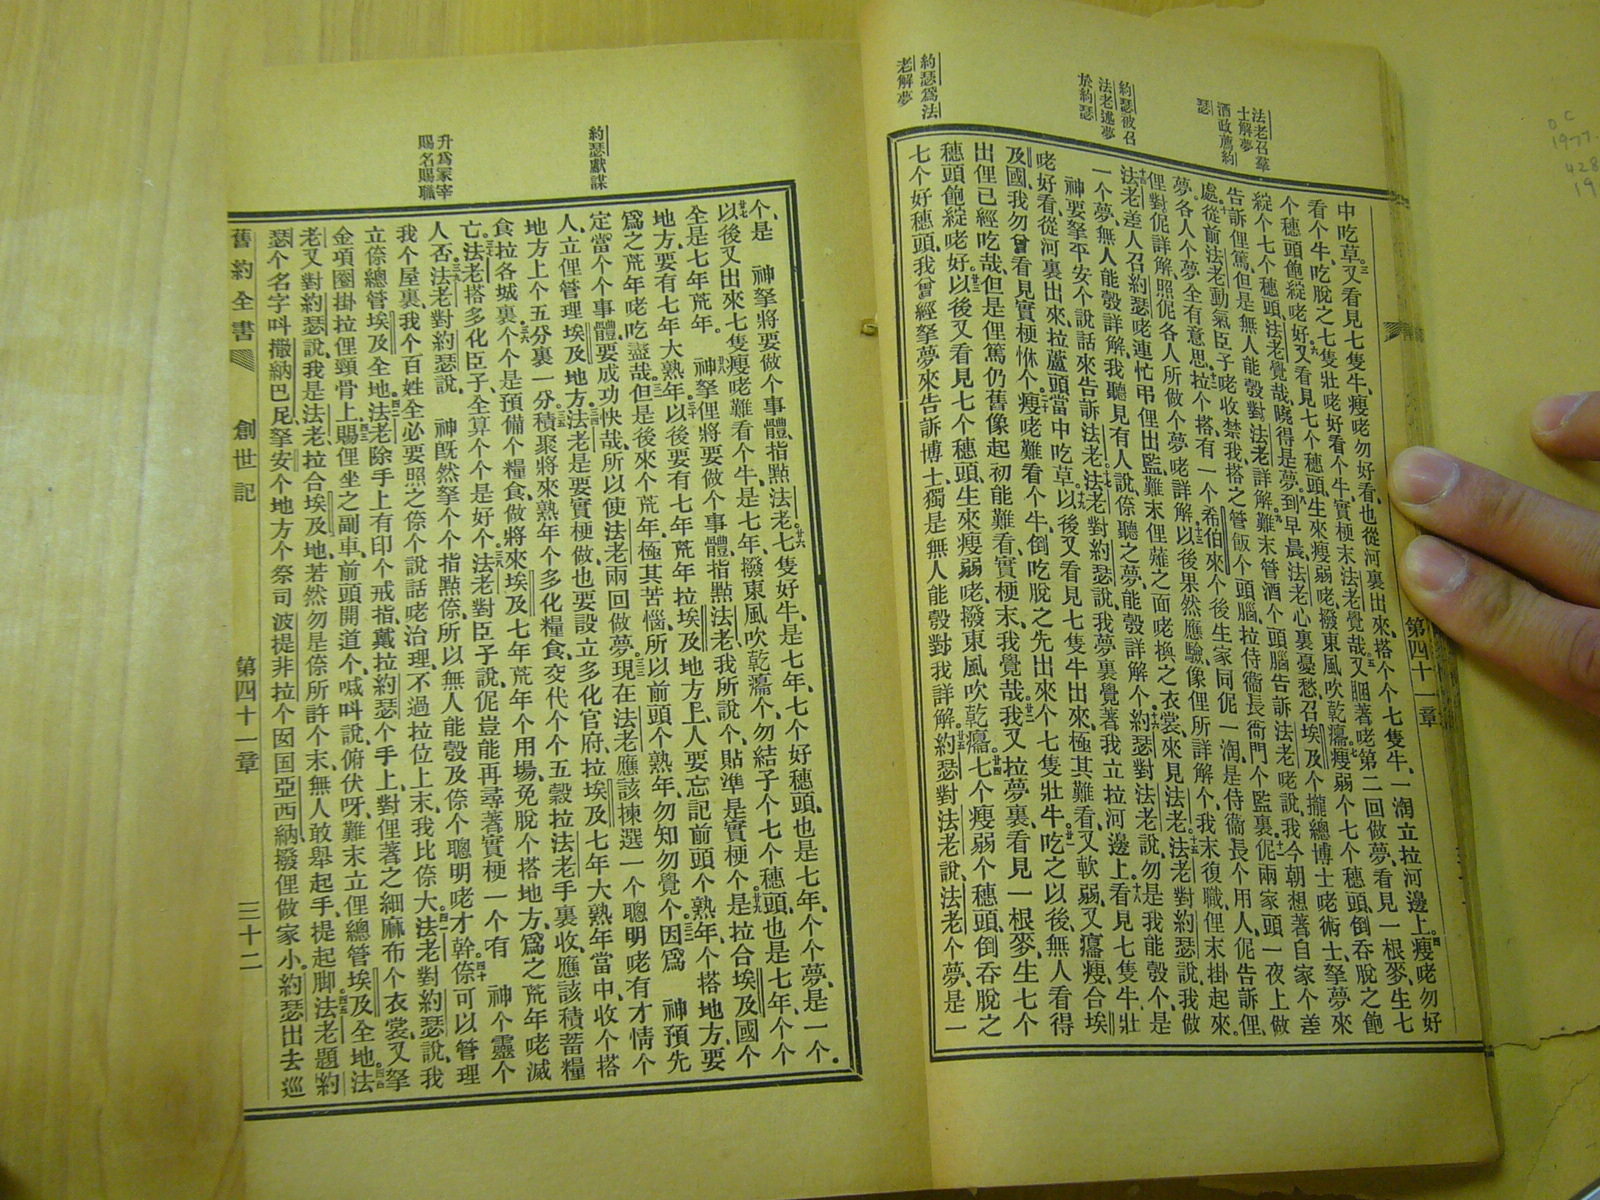 第四十一章
法老召羣
士解夢
酒政薦約
瑟
約瑟被召
法老述夢
於約瑟
約瑟爲法
老解夢
中吃草又看見七隻牛瘦咾勿好看也從河裏出來搭个个七隻牛一淘立拉河邊上瘦咾勿好
看个牛吃脫之七隻壯咾好看个牛實梗末法老覺哉又䀫著咾第二回做夢看見一根麥生七
个穗頭飽綻咾好又看見七个穗頭生來瘦弱咾撥東風吹乾癟瘦弱个七个穗頭倒吞脫之飽
綻个七个穗頭法老覺哉曉得是夢到早晨法老心裏憂愁召埃及个攏總博士咾術士拏夢來
告訴俚篤但是無人能彀對法老詳解難末管酒个頭腦告訴法老咾說我今朝想著自家个差
處從前法老動氣臣子咾收禁我搭之管飯个頭腦拉侍衞長衙門个監裏伲兩家頭一夜上做
夢各人个夢全有意思拉个搭有一个希伯來个後生家同伲一淘是侍衞長个用人伲告訴俚
俚對伲詳解照伲各人所做个夢咾詳解以後果然應驗像俚所詳解个我末復職俚末掛起來
法老差人召約瑟咾連忙弔俚出監難末俚薙之面咾換之衣裳來見法老法老對約瑟說我做
一个夢無人能彀詳解我聽見有人說倷聽之夢能彀詳解个約瑟對法老說勿是我能彀个是
神要拏平安个說話來告訴法老法老對約瑟說我夢裏覺著我立拉河邊上看見七隻牛壯
咾好看從河裏出來拉蘆頭當中吃草以後又看見七隻牛出來極其難看又軟弱又癟瘦合埃
及國我勿曾看見實梗恘个瘦咾難看个牛倒吃脫之先出來个七隻壯牛吃之以後無人看得
出俚已經吃哉但是俚篤仍舊像起初能難看實梗末我覺哉我又拉夢裏看見一根麥生七个
穗頭飽綻咾好以後又看見七个穗頭生來瘦弱咾撥東風吹乾癟七个瘦弱个穗頭倒吞脫之
七个好穗頭我曾經拏夢來告訴博士獨是無人能彀對我詳解約瑟對法老說法老个夢是一
約瑟獻謀
升爲家宰
賜名賜職
个是 神拏將要做个事體指點法老七隻好牛是七年七个好穗頭也是七年个个夢是一个
以後又出來七隻瘦咾難看个牛是七年撥東風吹乾癟个勿結子个七个穗頭也是七年个个
全是七年荒年 神拏俚將要做个事體指點法老我所說个貼準是實梗个是拉合埃及國个
地方要有七年大熟年以後要有七年荒年拉埃及地方上人要忘記前頭个熟年个搭地方要
爲之荒年咾吃盡哉但是後來个荒年極其苦惱所以前頭个熟年勿知勿覺个因爲 神預先
定當个个事體要成功快哉所以使法老兩回做夢現在法老應該揀選一个聰明咾有才情个
人立俚管理埃及地方法老是要實梗做也要設立多化官府拉埃及七年大熟年當中收个搭
地方上个五分裏一分積聚將來熟年个多化糧食交代个个五穀拉法老手裏收應該積蓄糧
食拉各城裏个个是預備个糧食做將來埃及七年荒年个用場免脫个搭地方爲之荒年咾滅
亡法老搭多化臣子全算个个是好个法老對臣子說伲豈能再尋著實梗一个有 神个靈个
人否法老對約瑟說 神旣然拏个个指點倷所以無人能彀及倷个聰明咾才幹倷可以管理
我个屋裏我个百姓全必要照之倷个說話咾治理不過拉位上末我比倷大法老對約瑟說我
立倷總管埃及全地法老除手上有印个戒指戴拉約瑟个手上對俚著之細麻布个衣裳又拏
金項圈掛拉俚頸骨上賜俚坐之副車前頭開道个喊呌說俯伏呀難末立俚總管埃及全地法
老又對約瑟說我是法老拉合埃及地若然勿是倷所許个末無人敢舉起手提起脚法老題約
瑟个名字呌撒納巴尼拏安个地方个祭司波提非拉个囡囝亞西納撥俚做家小約瑟出去巡
舊約全書 創世記 第四十一章 三十二